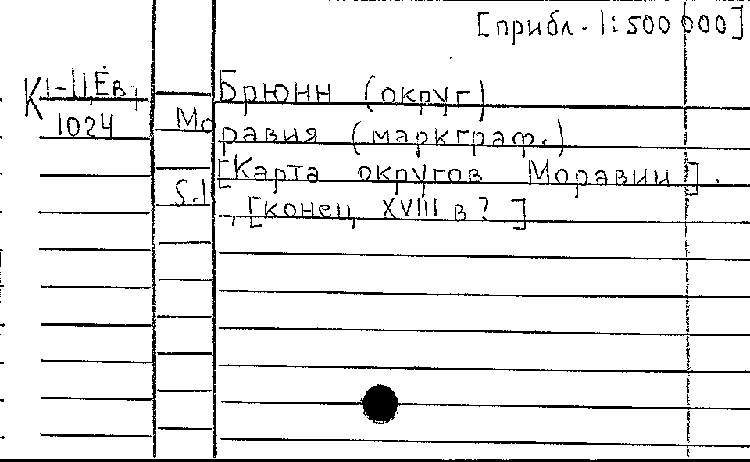 [прибл. 1:500 000]
К 1-Ц.Ев. Брюнн (округ)
1024 Моравия (маркграф.)
[Карта округов Моравии].
S.l., [конец XVIII в? ]